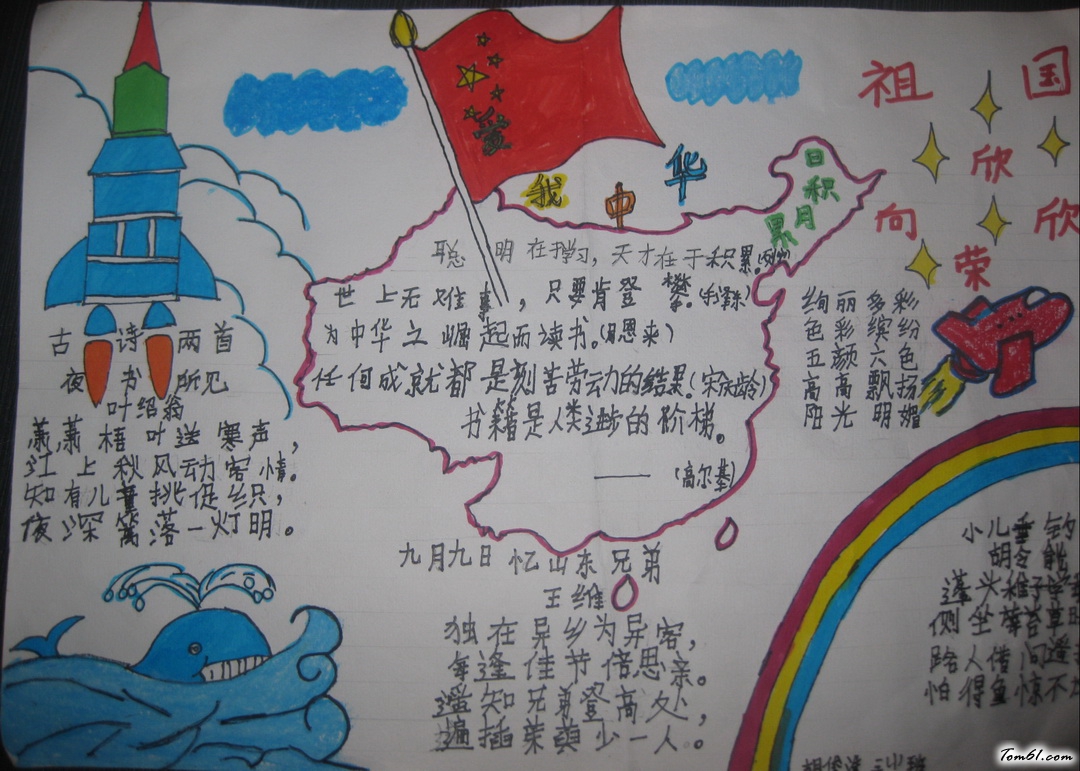 爱我中华
祖国
欣欣向荣
日积月累
聪明在于学习，天才在于积累。
世上无难事，只要肯登攀。(毛泽东)
为中华之崛起而读书。(周恩来)
任何成就都是刻苦劳动的结果。(宋庆龄)
书籍是人类进步的阶梯。
——(高尔基)
绚丽多彩
色彩缤纷
五颜六色
高高飘扬
阳光明媚
古诗两首
夜书所见
叶绍翁
萧萧梧叶送寒声，
江上秋风动客情。
知有儿童挑促织，
夜深篱落一灯明。
九月九日忆山东兄弟
王维
独在异乡为异客，
每逢佳节倍思亲。
遥知兄弟登高处，
遍插茱萸少一人。
小儿垂钓
胡令能
蓬头稚子学
侧坐莓苔草
路人借问遥
怕得鱼惊不
Tom61.com